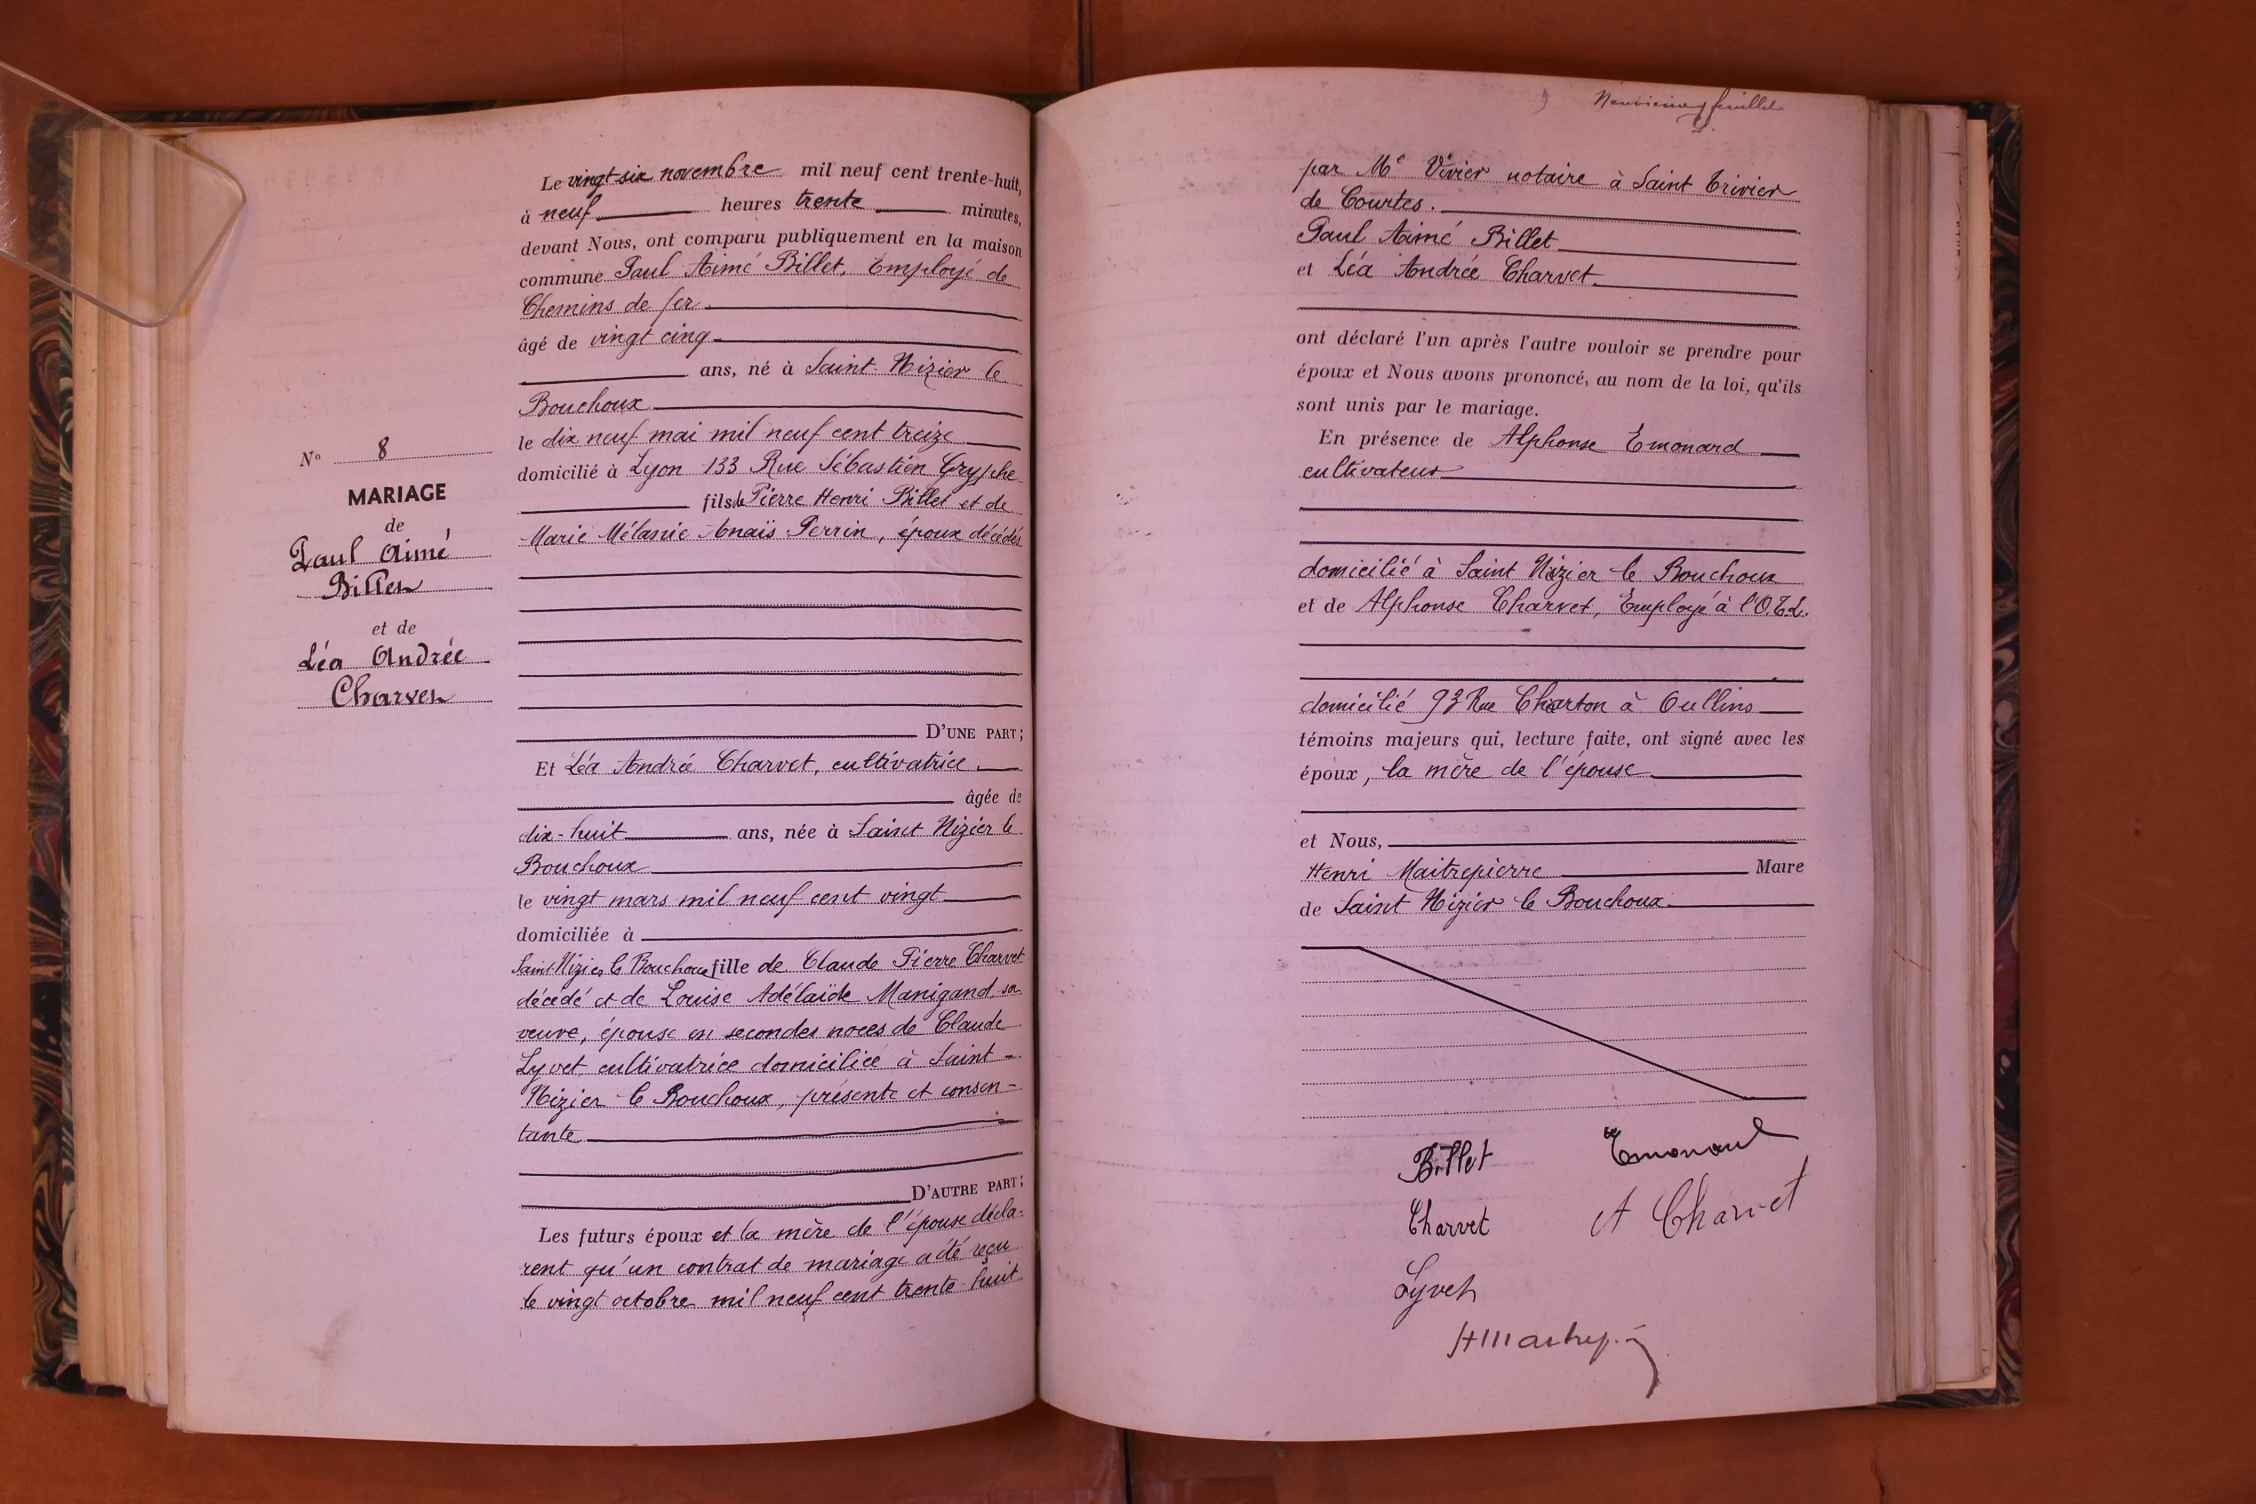 Le vingt-six novembre mil neuf cent trente-huit,
à neuf heures trente minutes,
devant Nous, ont comparu publiquement en la maison
commune Paul Aimé Billet, Employé de
Chemins de fer
âgé de vingt cinq
ans, né à Saint-Nizier le
Bouchoux
le dix neuf mai mil neuf cent treize
domicilié à Lyon 133 Rue Sébastien Gryphe
fils de Pierre Henri Billet et de
Marie Mélanie Anaïs Perrin, époux décédés
D'UNE PART;
Et Léa Andrée Charvet, cultivatrice
âgée de
dix-huit ans, née à Saint Nizier le
Bouchoux
le vingt mars mil neuf cent vingt
domiciliée à
Saint Nizier le Bouchoux fille de Claude Pierre Charvet
décédé et de Louise Adélaïde Manigand sa
veuve, épouse en secondes noces de Claude
Lyvet, cultivatrice domiciliée à Saint-
Nizier le Bouchoux, présente et consen-
tante
D'AUTRE PART;
Les futurs époux et la mère de l'épouse décla-
rent qu'un contrat de mariage a été reçu
le vingt octobre mil neuf cent trente-huit
N° 8
MARIAGE
de
Paul Aimé
Billet
et de
Léa Andrée
Charvet
9 Neuvième feuillet
par Me Vivier notaire à Saint Trivier
de Courtes.
Paul Aimé Billet
et Léa Andrée Charvet
ont déclaré l'un après l'autre vouloir se prendre pour
époux et Nous avons prononcé, au nom de la loi, qu'ils
sont unis par le mariage.
En présence de Alphonse Emonard
cultivateur
domicilié à Saint Nizier le Bouchoux
et de Alphonse Charvet, Employé à l'O.T.L.
domicilié 93 Rue Charton à Oullins
témoins majeurs qui, lecture faite, ont signé avec les
époux, la mère de l'épouse
et Nous,
Henri Maitrepierre Maire
de Saint Nizier le Bouchoux.
Billet Emonard
Charvet A Charvet
Lyvet